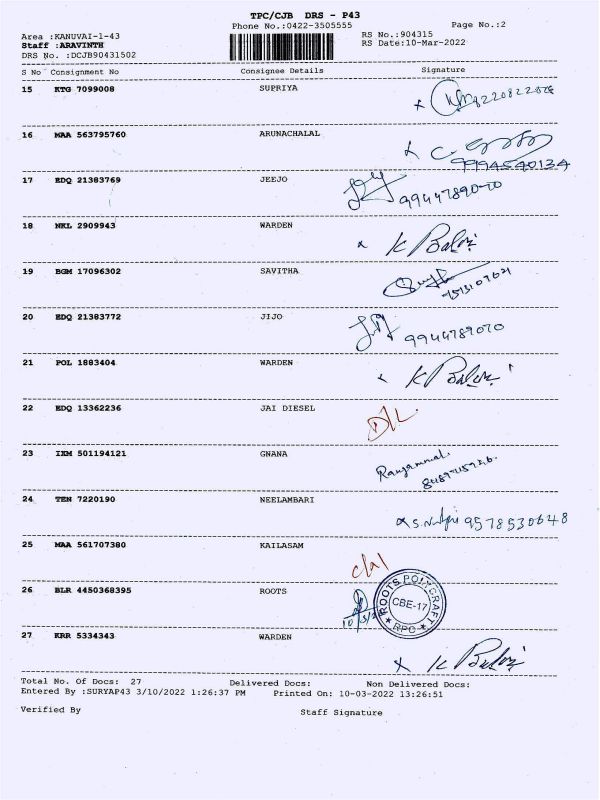 TPC/CJB DRS - P43
Phone No.:0422-3505555 Page No.:2
Area :KANUVAI-1-43 RS No.:904315
Staff :ARAVINTH RS Date:10-Mar-2022
DRS No. :DCJB90431502
S No Consignment No Consignee Details Signature
15 KTG 7099008 SUPRIYA
16 MAA 563795760 ARUNACHALAL
9994540134
17 EDQ 21383769 JEEJO 9944789070
18 NKL 2909943 WARDEN x K Balaji
19 BGM 17096302 SAVITHA
20 EDQ 21383772 JIJO 9944789070
21 POL 1883404 WARDEN x K Balaji
22 EDQ 13362236 JAI DIESEL D/L.
23 IXM 501194121 GNANA Rangammal.
24 TEN 7220190 NEELAMBARI 9578530648
25 MAA 561707380 KAILASAM
26 BLR 4450368395 ROOTS ROOTS POLYCRAFT CBE-17 RPC
27 KRR 5334343 WARDEN x K Balaji
Total No. Of Docs: 27 Delivered Docs: Non Delivered Docs:
Entered By :SURYAP43 3/10/2022 1:26:37 PM Printed On: 10-03-2022 13:26:51
Verified By Staff Signature